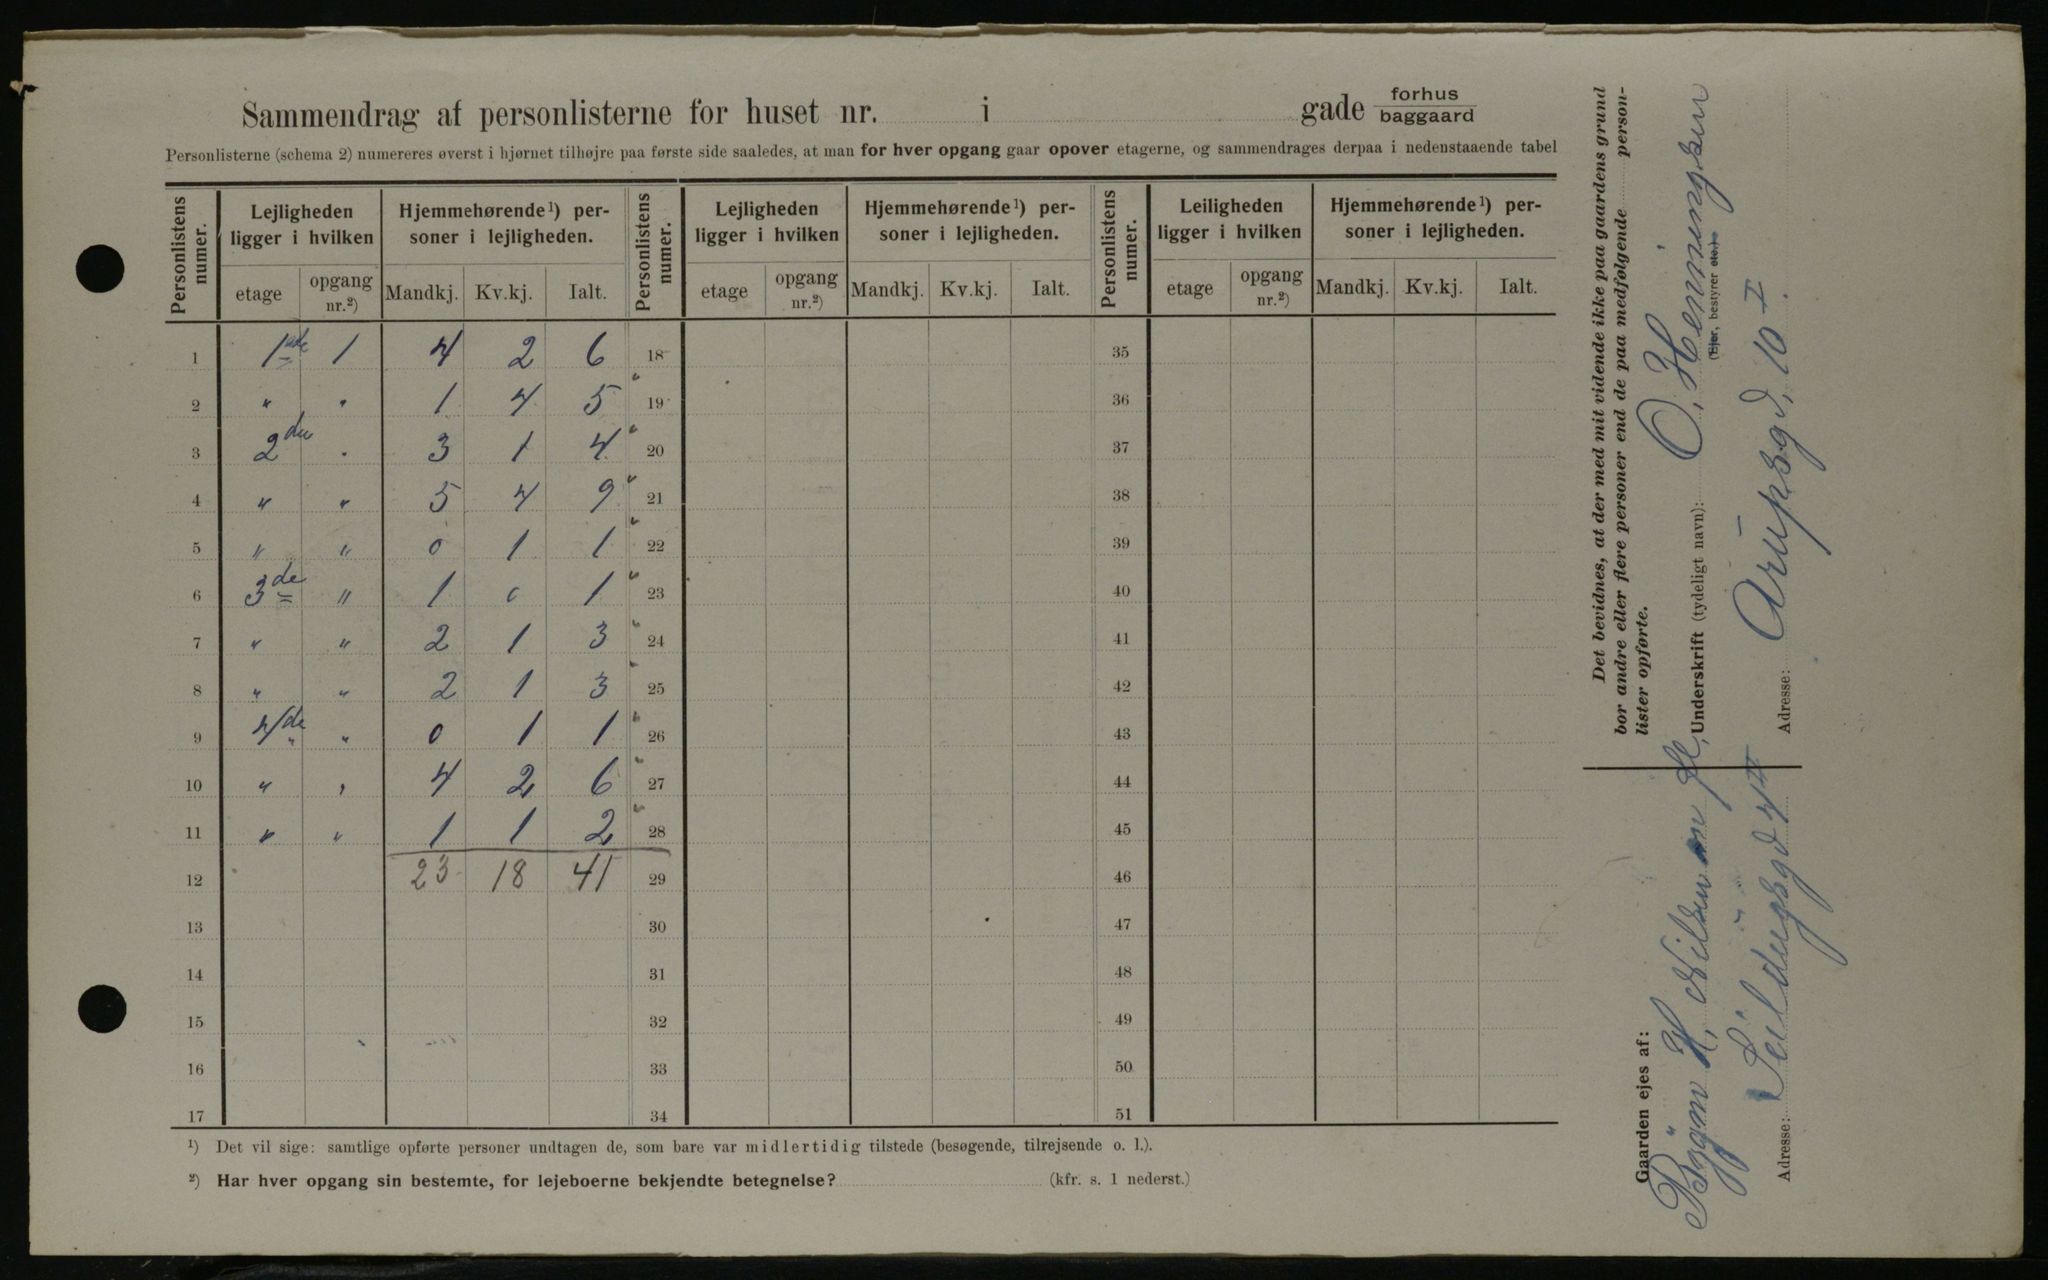 Sammendrag af personlisterne for huset nr. i gade forhus baggaard
Personlisterne (schema 2) numereres øverst i hjørnet tilhøjre paa første side saaledes, at man for hver opgang gaar opover etagerne, og sammendrages derpaa i nedenstaaende tabel
Personlistens numer. Lejligheden ligger i hvilken Hjemmehørende¹) personer i lejligheden. Personlistens numer. Lejligheden ligger i hvilken Hjemmehørende¹) personer i lejligheden. Personlistens numer. Leiligheden ligger i hvilken Hjemmehørende¹) personer i lejligheden.
etage opgang nr.²) Mandkj. Kv.kj. Ialt. etage opgang nr.²) Mandkj. Kv.kj. Ialt. etage opgang nr.²) Mandkj. Kv.kj. Ialt.
1 1 1 4 2 6 18 35
2 " " 1 4 5 19 36
3 2den " 3 1 4 20 37
4 " " 5 4 9 21 38
5 " " 0 1 1 22 39
6 3de " 1 0 1 23 40
7 " " 2 1 3 24 41
8 " " 2 1 3 25 42
9 4de " 0 1 1 26 43
10 " " 4 2 6 27 44
11 " " 1 1 2 28 45
12 23 18 41 29 46
13 30 47
14 31 48
15 32 49
16 33 50
17 34 51
¹) Det vil sige: samtlige opførte personer undtagen de, som bare var midlertidig tilstede (besøgende, tilrejsende o. l.).
²) Har hver opgang sin bestemte, for lejeboerne bekjendte betegnelse? (kfr. s. 1 nederst.)
Det bevidnes, at der med mit vidende ikke paa gaardens grund
bor andre eller flere personer end de paa medfølgende person-
lister opførte.
Underskrift (tydeligt navn): O. Henningsen
(Ejer, bestyrer etc.)
Adresse: Arupsgd. 10 I.
Gaarden ejes af:
H.
Adresse: Seildugsgd